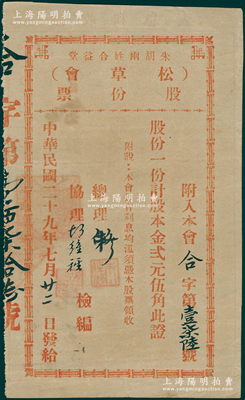 上海陽明拍賣
朱胡兩姓合益堂
（松草會）
股份票
附入本會 合 字第壹柒陸號
股份一份計股本金弍元伍角此證
附說：本會
利息均
須繳本股票領收
總理
協理
檢編
中華民國二十九年七月廿二日發給
合字第
號
上海陽明拍賣
www.ymauction.com